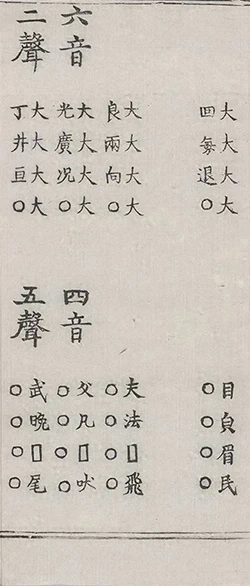 六音
二聲
大大大大
回每退○
大大大大
良兩向○
大大大大
光廣况○
大大大大
丁井亘○
四音
五聲
目貞眉民
○○○○
夫法□飛
○○○○
父凡□吠
○○○○
武晚□尾
○○○○